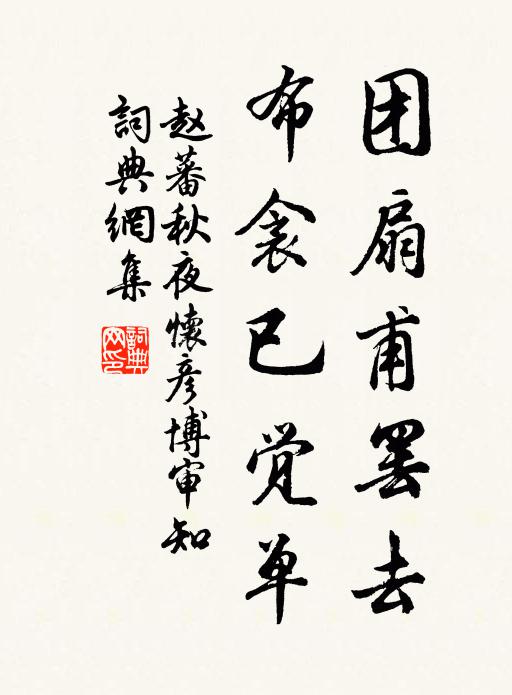 团扇甫罢去
布衾已觉单
赵蕃秋夜怀彦博审知
詞典網集
詞典網印